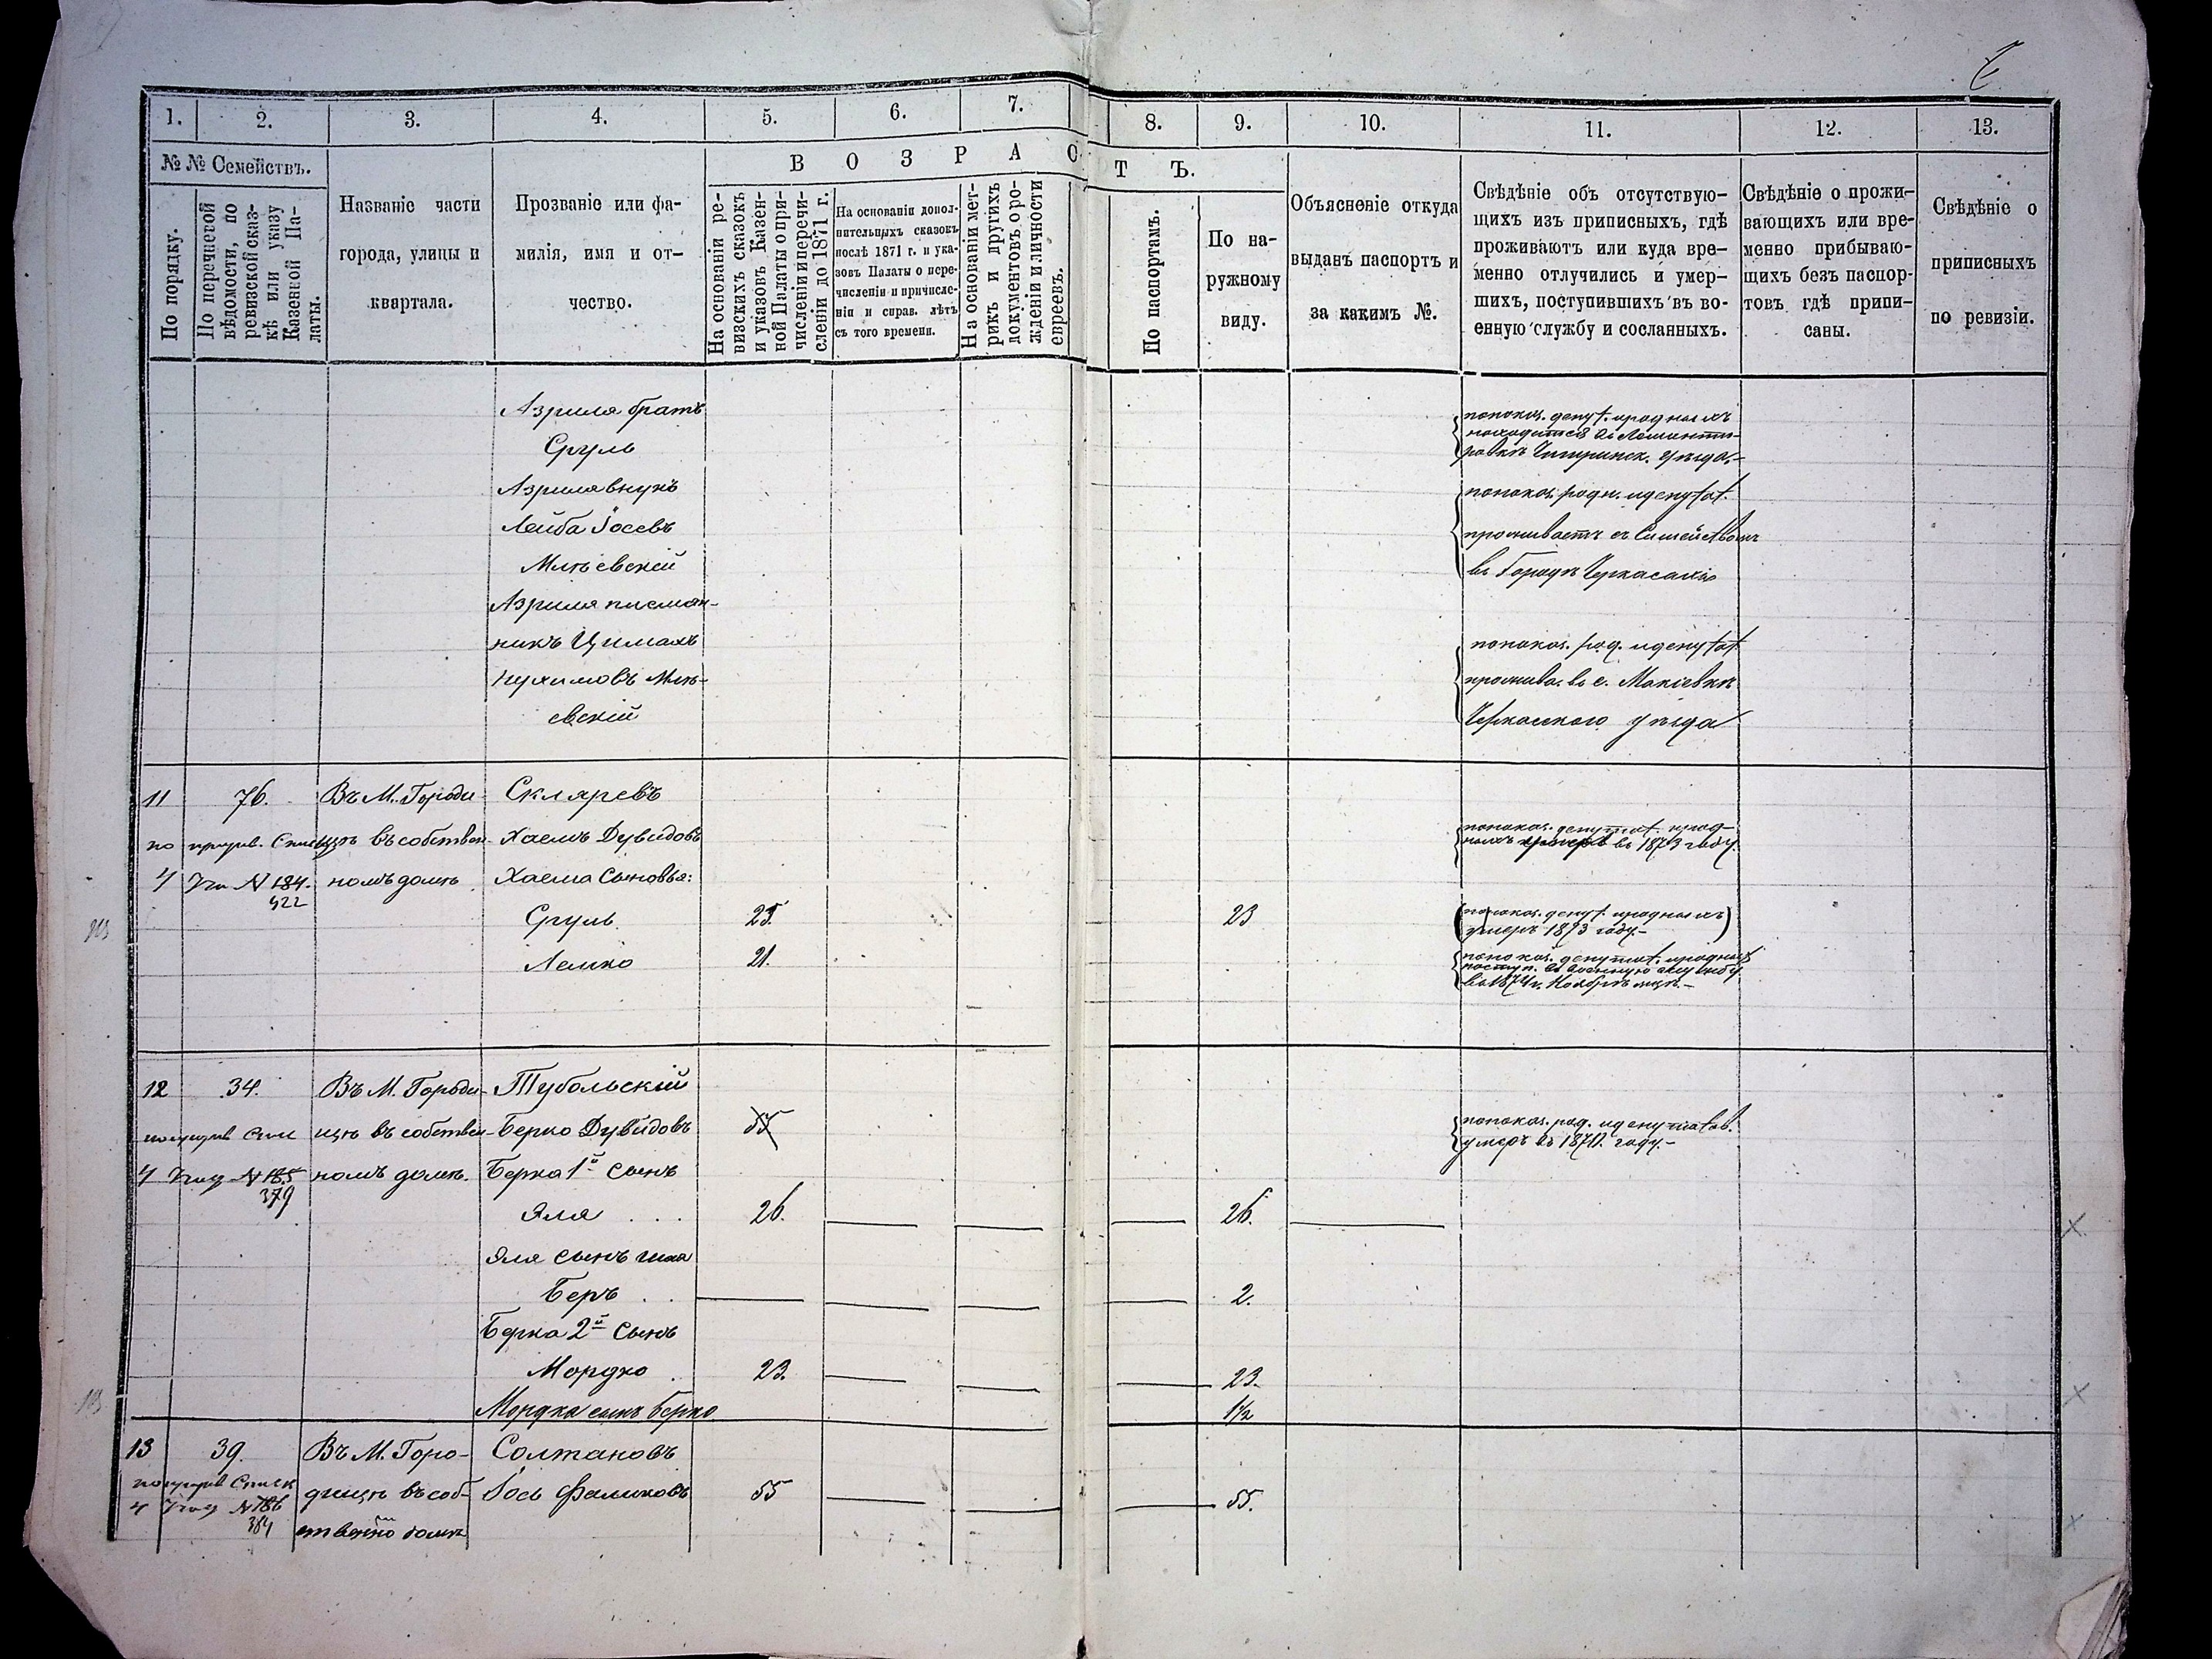 1. 2. 3. 4. 5. 6. 7. 8. 9. 10. 11. 12. 13.
№ № Семействъ.
По порядку.
По перечневой
вѣдомости, по
ревизской сказ-
кѣ или указу
Казенной Па-
латы.
Названіе части
города, улицы и
квартала.
Прозваніе или фа-
милія, имя и от-
чество.
ВОЗРАСТЪ.
На основаніи ре-
визскихъ сказокъ
и указовъ Казен-
ной Палаты о при-
численіи и перечи-
сленіи до 1871 г.
На основаніи допол-
нительныхъ сказокъ
послѣ 1871 г. и ука-
зовъ Палаты о пере-
численіи и причисле-
ніи и справ. лѣтъ
съ того времени.
На основаніи мет-
рикъ и другихъ
документовъ о ро-
жденіи и личности
евреевъ.
По паспортамъ.
По на-
ружному
виду.
Объясненіе откуда
выданъ паспортъ и
за какимъ №.
Свѣдѣніе объ отсутствую-
щихъ изъ приписныхъ, гдѣ
проживаютъ или куда вре-
менно отлучились и умер-
шихъ, поступившихъ въ во-
енную службу и сосланныхъ.
Свѣдѣніе о прожи-
вающихъ или вре-
менно прибываю-
щихъ безъ паспор-
товъ гдѣ припи-
саны.
Свѣдѣніе о
приписныхъ
по ревизіи.
Азриля братъ
Сруль
попоказ. депут. иродныхъ
находится въ
Чигиринск. уѣзда
Азриля внукъ
Лейба Іосевъ
Мліевскій
попоказ. родн. идепутат.
проживаетъ съ Семействомъ
въ Городѣ Черкасахъ
Азриля племян-
никъ Цимахъ
Нухимовъ Млі-
евскій
попоказ. род. идепутат
прожива. въ с. Макіевкѣ
Черкасского уѣзда
11 76. Въ М. Городи- Скляревъ
по призыв. Списку щѣ въ собствен- Хаемъ Дувидовъ
попоказ. депутат. ирод-
ныхъ въ 1873 году.
4 Уча № 184. номъ домѣ Хаема Сыновья:
422
Сруль 23. 23
попоказ. депут. иродныхъ
умеръ 1873 году.-
Лемко 21.
попоказ. депутат. иродныхъ
поступ. въ военную службу
въ 1874 г. Ноябрѣ мцѣ.-
12 34. Въ М. Городи- Тубольскій
по призыв Спис щѣ въ собствен- Берко Дувидовъ
попоказ. род. идепутатов.
умеръ въ 187 году.-
4 Учас № 185 номъ домѣ. Берка 1й Сынъ
379
Эля . . . 26. 26.
Эля сынъ
Беръ . . 2.
Берка 2й Сынъ
Мордко . 23. 23.
Мордка сынъ Берко 1½
13 39. Въ М. Горо- Солтановъ
по призыв Списк дищѣ въ соб- Іось Фаликовъ 55 55.
4 Учас № 186
384 ственно домѣ